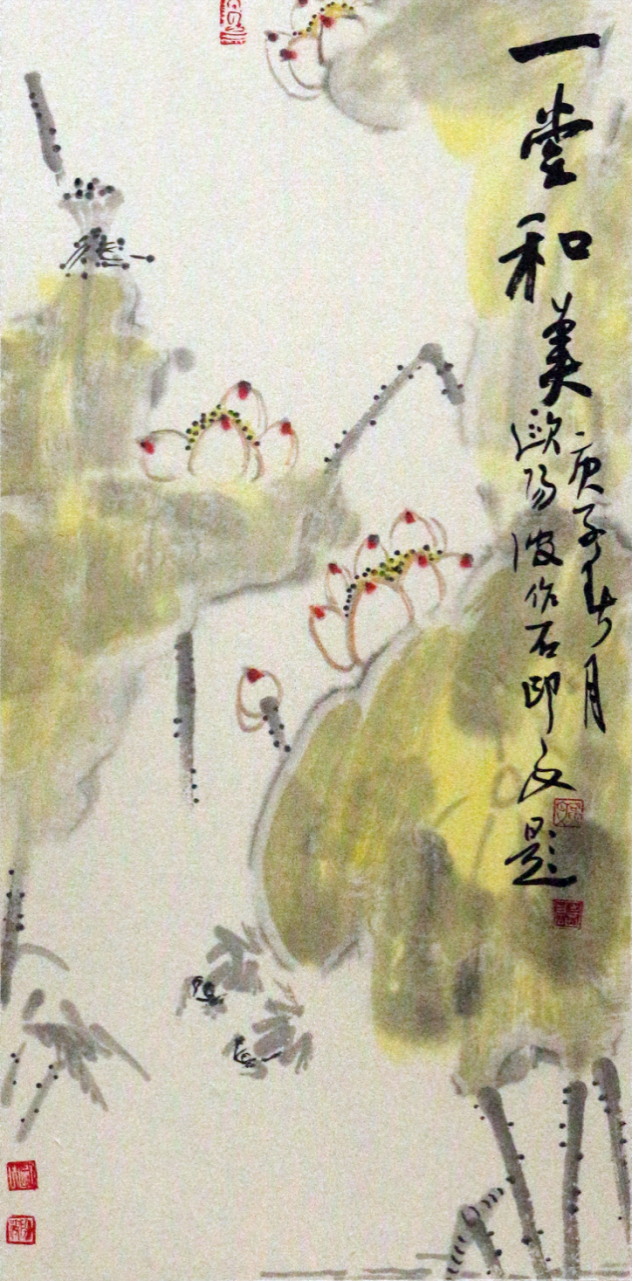 一堂和美
庚子春月
歐陽波作石邱文題